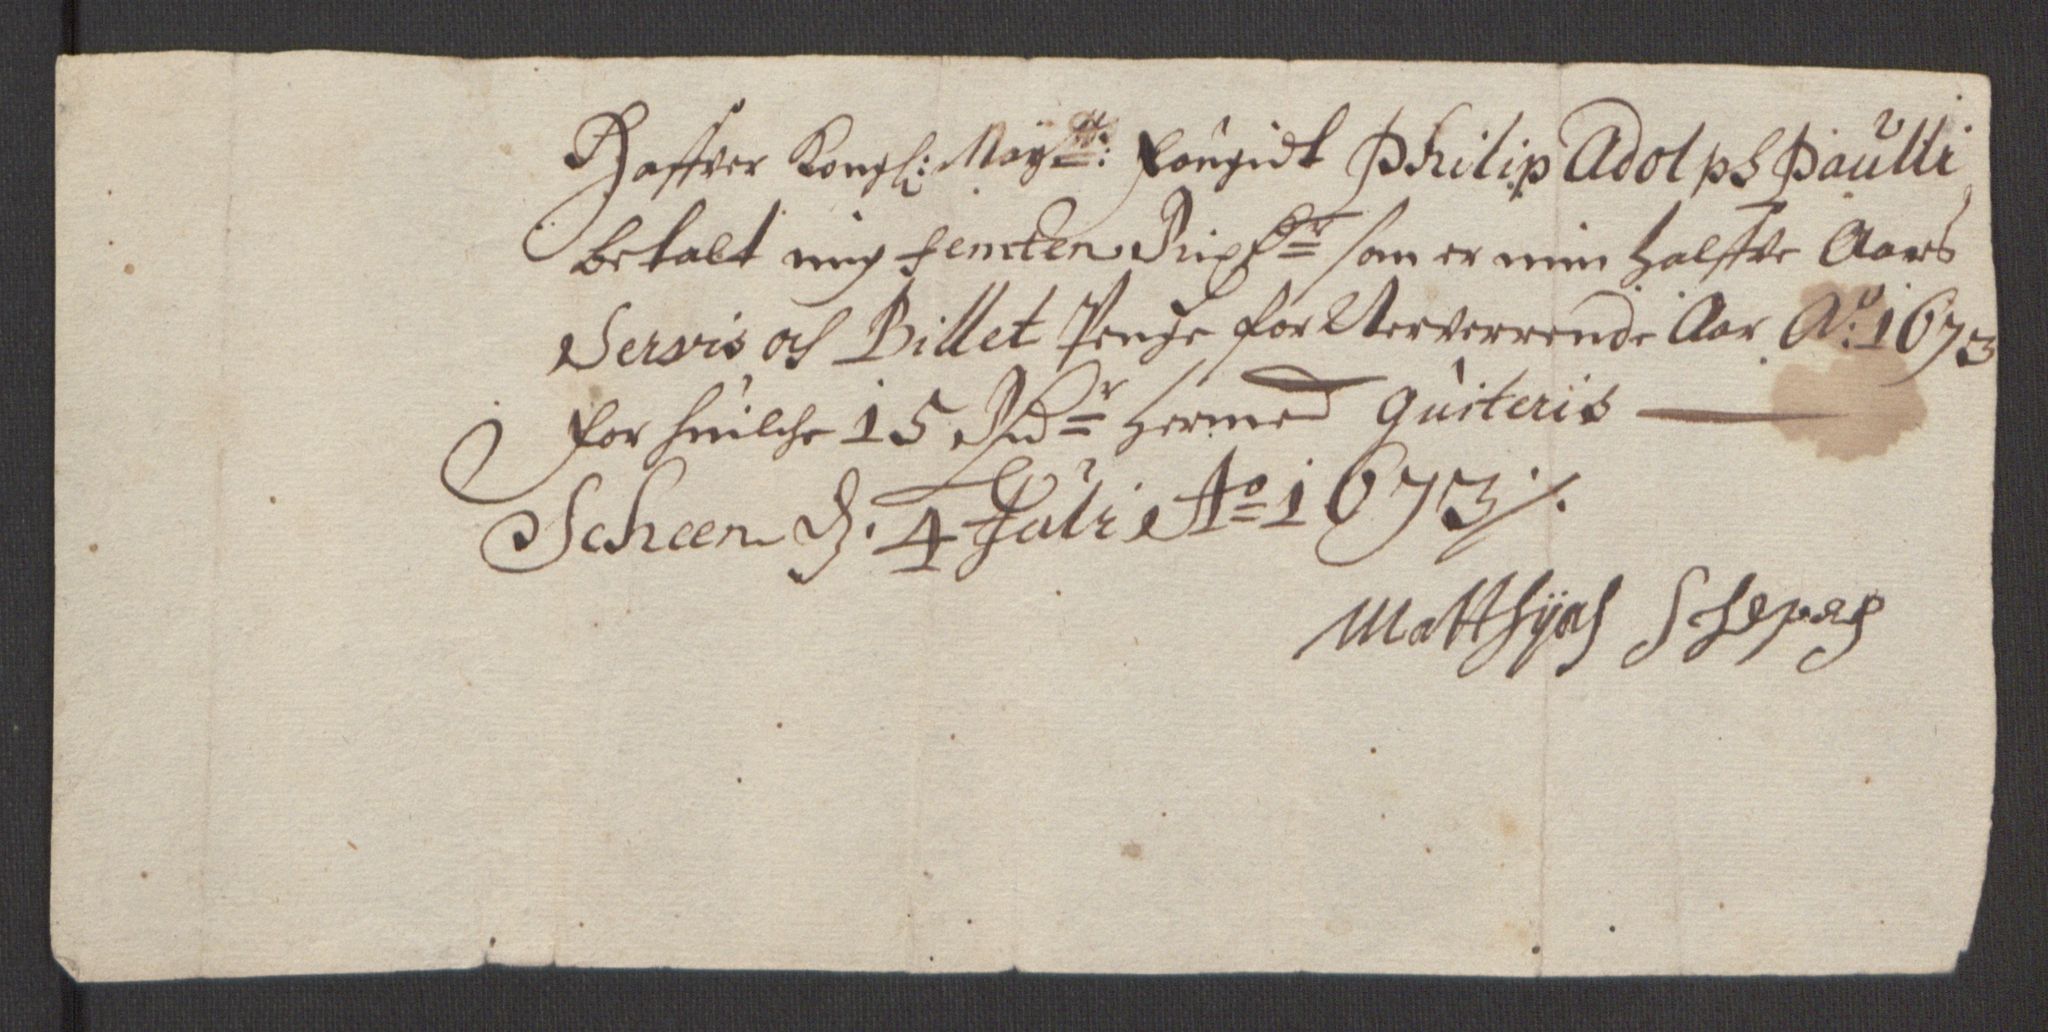 Haffver Kongl: May:tt: Fougidt Philip Adolph Paulli
betalt mig femten Rixdr som er min halffve Aars
Servis och Billet Penge for Nerverrende Aar Ao: 1673
for huilche 15 Rdr hermed quiteris
Scheen d. 4 Juli Ao 1673 ⁒
Matthÿas